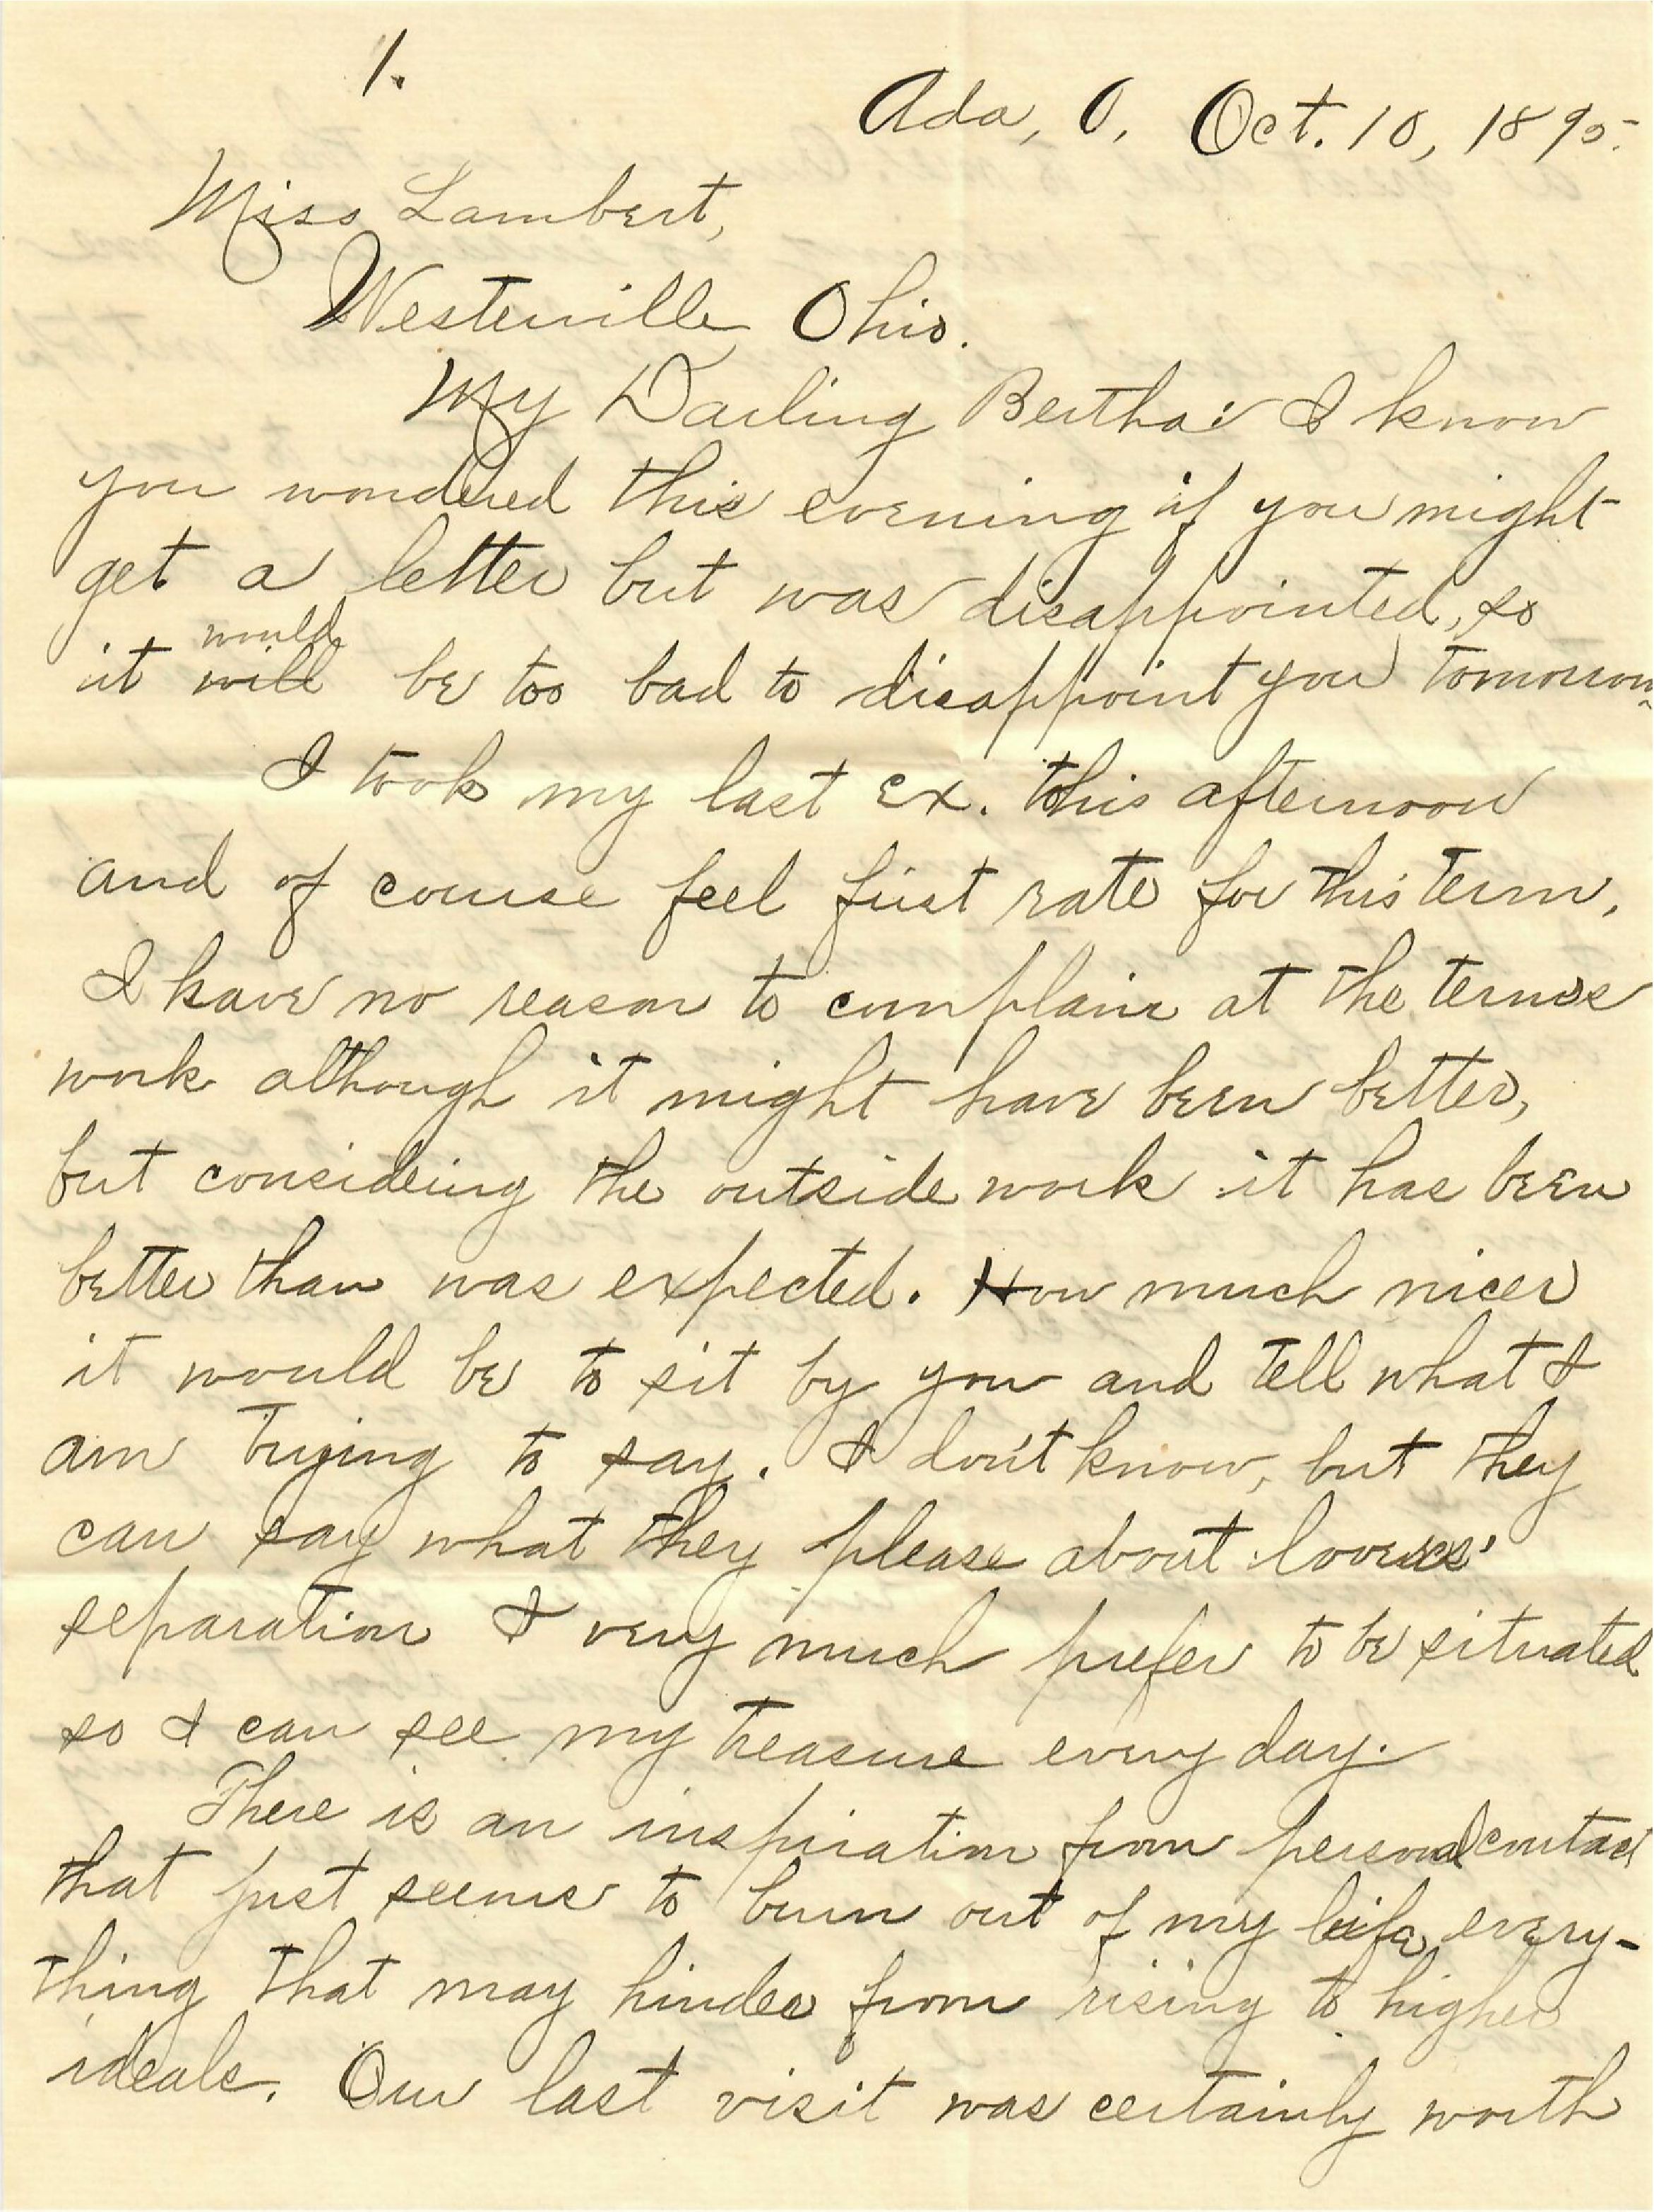 1.
Ada, O, Oct. 10, 1895.
Miss Lambert,
Westerville Ohio.
My Darling Bertha: I know
you wondered this evening if you might
get a letter but was disappointed, so
would
it will be too bad to disappoint you tomorrow.
I took my last ex. this afternoon
and of course feel first rate for this term.
I have no reason to complain at the terms
work although it might have been better,
but considering the outside work it has been
better than was expected. How much nicer
it would be to sit by you and tell what I
am trying to say. I don't know, but they
can say what they please about lovers'
separation I very much prefer to be situated
so I can see my treasure every day.
There is an inspiration from personal contact
that just seems to burn out of my life every-
thing that may hinder from rising to higher
ideals. Our last visit was certainly worth